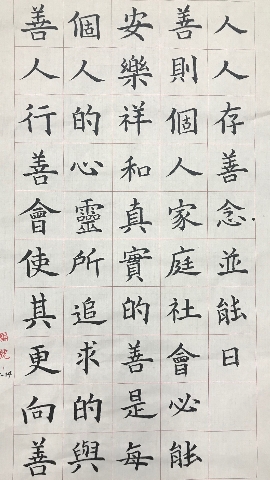 人人存善念並能日
善則個人家庭社會必能
安樂祥和真實的善是每
個人的心靈所追求的與
善人行善會使其更向善